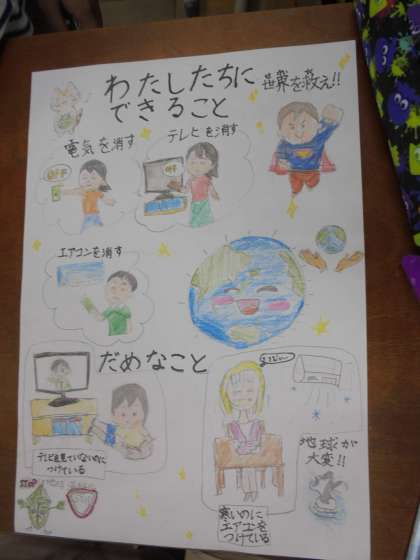 わたしたちに
できること
世界を救え!!
電気を消す
OFF
テレビを消す
OFF
エアコンを消す
だめなこと
テレビを見ていないのに
つけている
寒いのに
エアコンを
つけている
地球が
大変!!